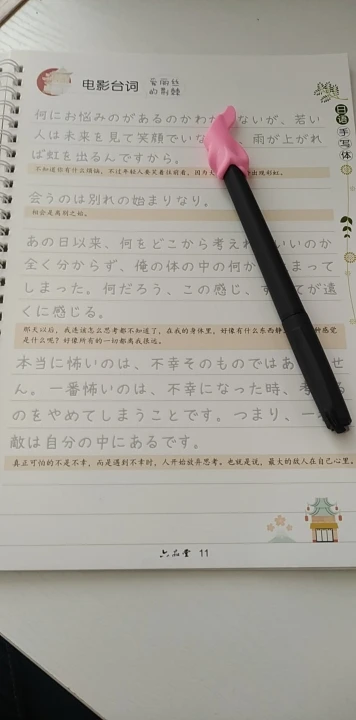 电影台词 爱丽丝
的荆棘
日语手写体
何にお悩みのがあるのかわ ないが、若い
人は未来を見て笑顔でいな 、雨が上がれ
ば虹を出るんですから。
不知道你有什么烦恼，不过年轻人要笑着往前看，因为 出现彩虹。
会うのは別れの始まりなり。
相会是离别之始。
あの日以来、何をどこから考えれ いいのか
全く分からず、俺の体の中の何か まって
しまった。何だろう、この感じ、す てが遠
くに感じる。
那天以后，我连该怎么思考都不知道了，在我的身体里，好像有什么东西 种感觉
是什么呢？好像所有的一切都离我很远。
本当に怖いのは、不幸そのものではあ せ
ん。一番怖いのは、不幸になった時、 る
のをやめてしまうことです。つまり、一
敵は自分の中にあるです。
真正可怕的不是不幸，而是遇到不幸时，人开始放弃思考。也就是说，最大的敌人在自己心里。
六品堂 11